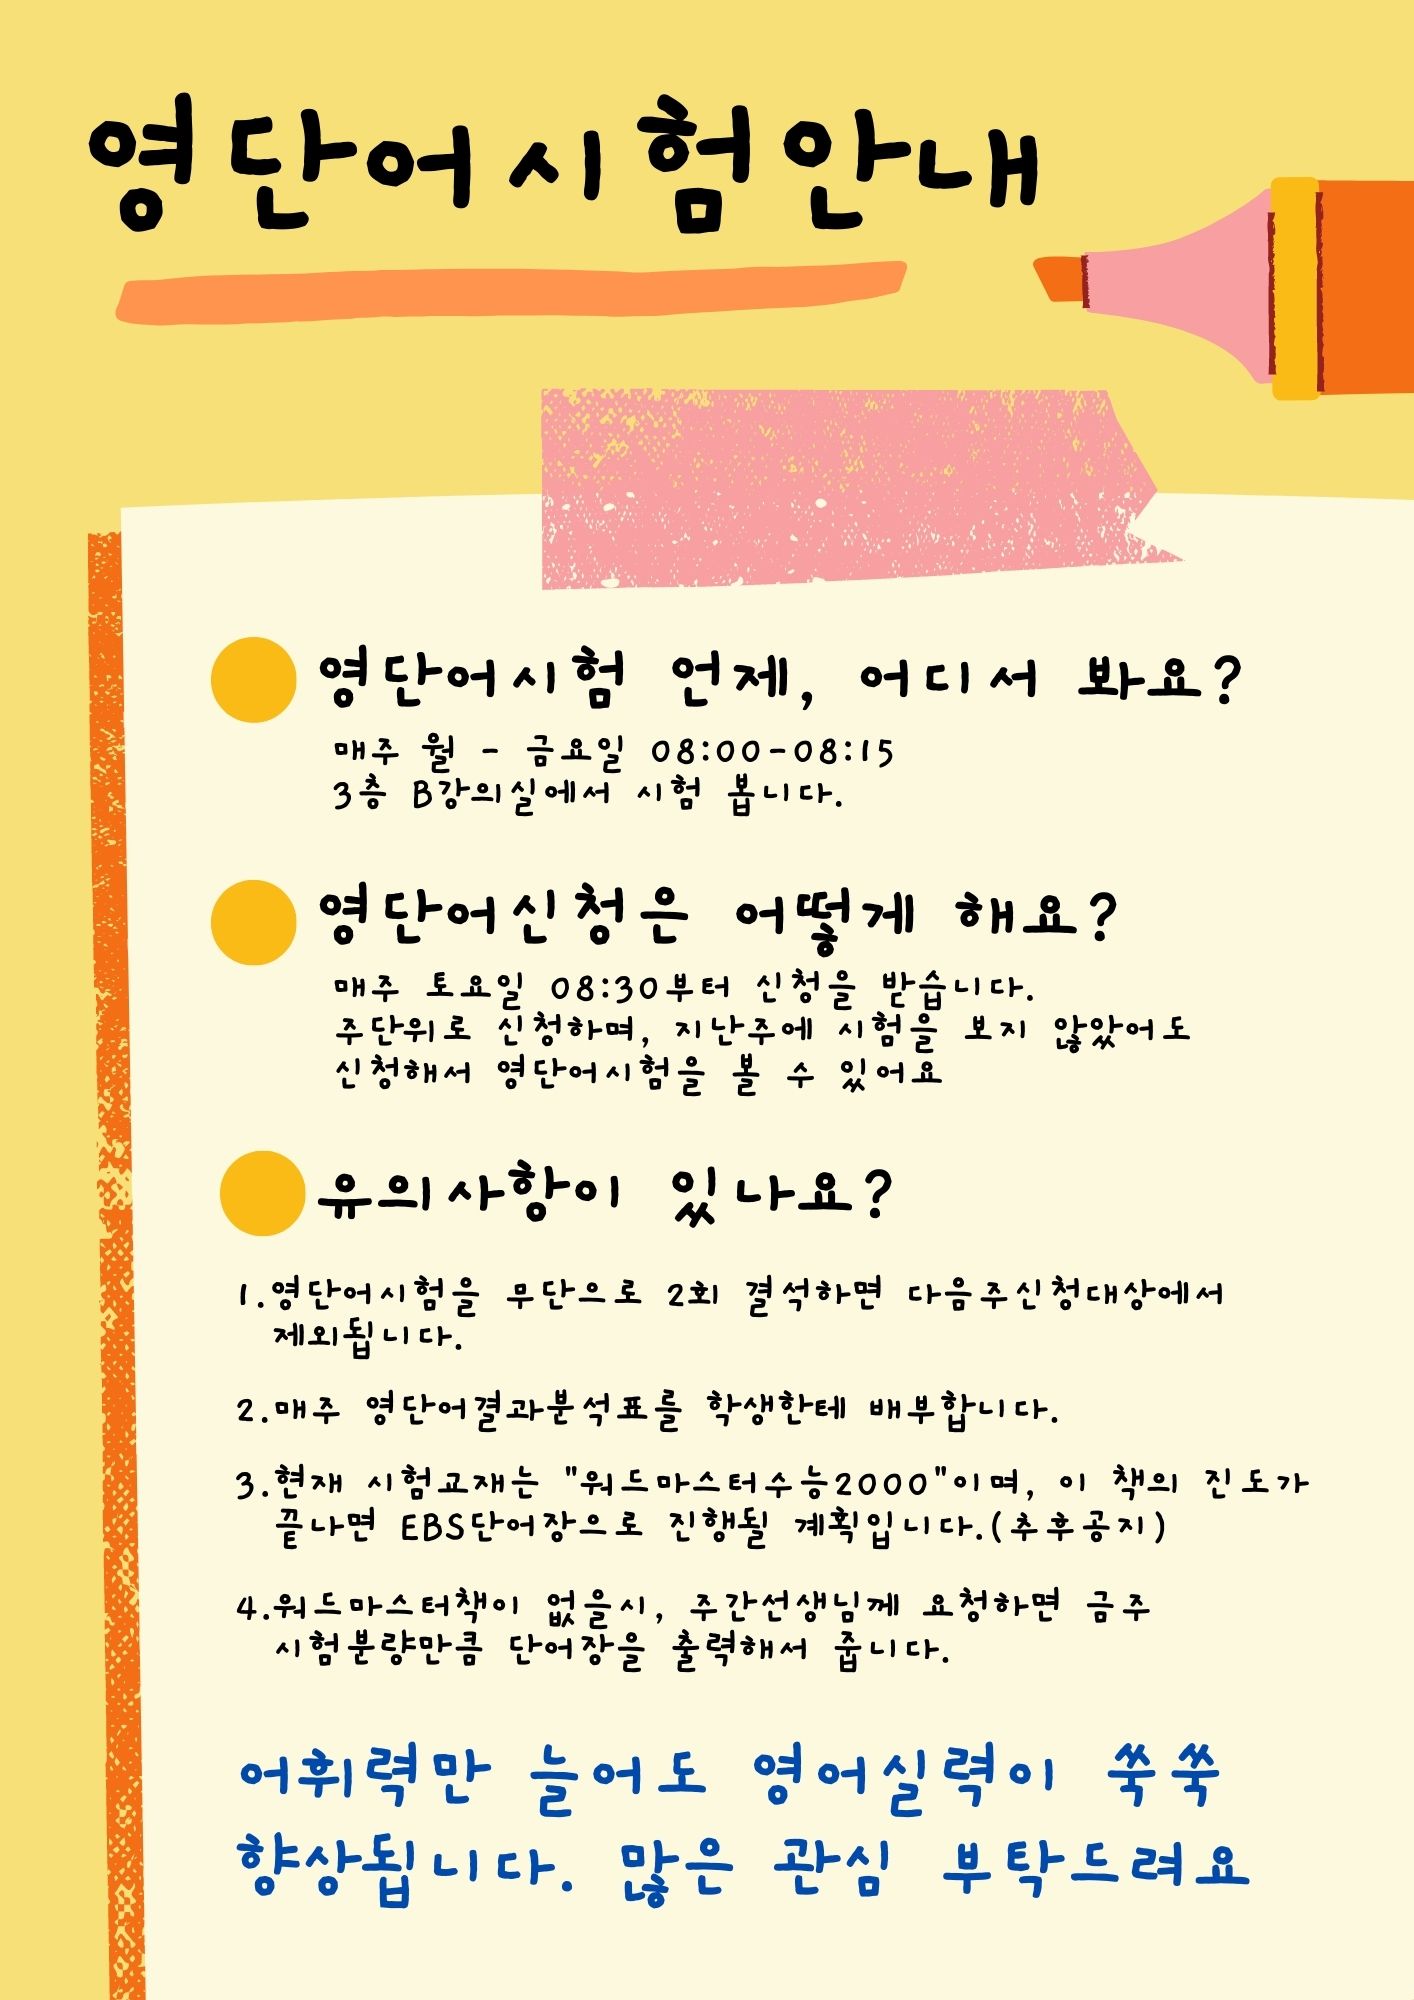 영단어시험안내
영단어시험 언제, 어디서 봐요?
매주 월 - 금요일 08:00-08:15
3층 B강의실에서 시험 봅니다.
영단어신청은 어떻게 해요?
매주 토요일 08:30부터 신청을 받습니다.
주단위로 신청하며, 지난주에 시험을 보지 않았어도
신청해서 영단어시험을 볼 수 있어요
유의사항이 있나요?
1.영단어시험을 무단으로 2회 결석하면 다음주신청대상에서
제외됩니다.
2.매주 영단어결과분석표를 학생한테 배부합니다.
3.현재 시험교재는 "워드마스터수능2000"이며, 이 책의 진도가
끝나면 EBS단어장으로 진행될 계획입니다.(추후공지)
4.워드마스터책이 없을시, 주간선생님께 요청하면 금주
시험분량만큼 단어장을 출력해서 줍니다.
어휘력만 늘어도 영어실력이 쑥쑥
향상됩니다. 많은 관심 부탁드려요